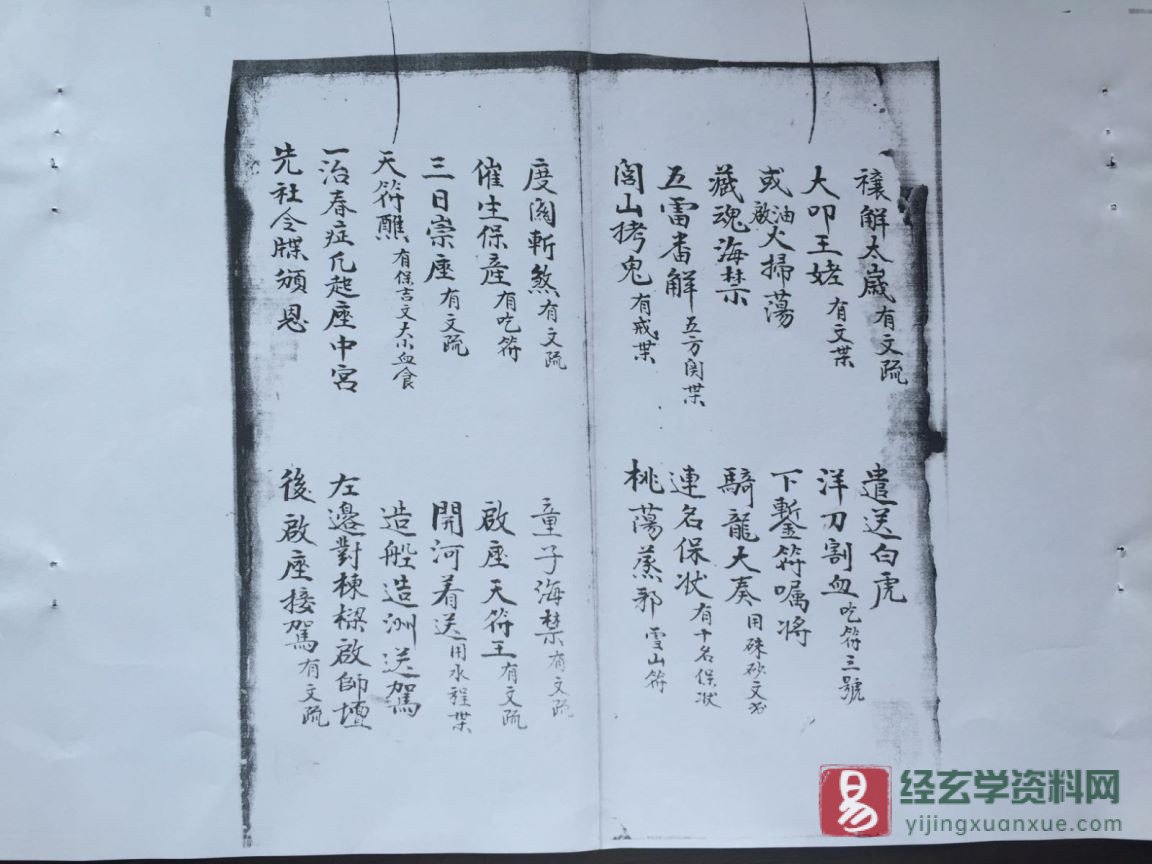 禳解太嵗有文疏
遣送白虎
大叩王姥有文枼
洋刀割血吃符三號
或油火掃蕩
啟
下鏨符嘱将
藏魂海禁
騎龍大奏用硃砂文
五雷番解五方関枼
連名保状有十名保状
閭山拷鬼有戒枼
桃蕩蒸邪雪山符
度関斬煞有文疏
童子海禁有文疏
催生保產有吃符
啟座天符王有文疏
三日崇座有文疏
開河看送用水程枼
天符醮有保吉文大小血食
造船造洲送駕
一治春症凡起座中宮
左邊對棟樑啟師壇
先社令牒頒恩
後啟座接駕有文疏
易
经玄学资料网
yijingxuanxue.com